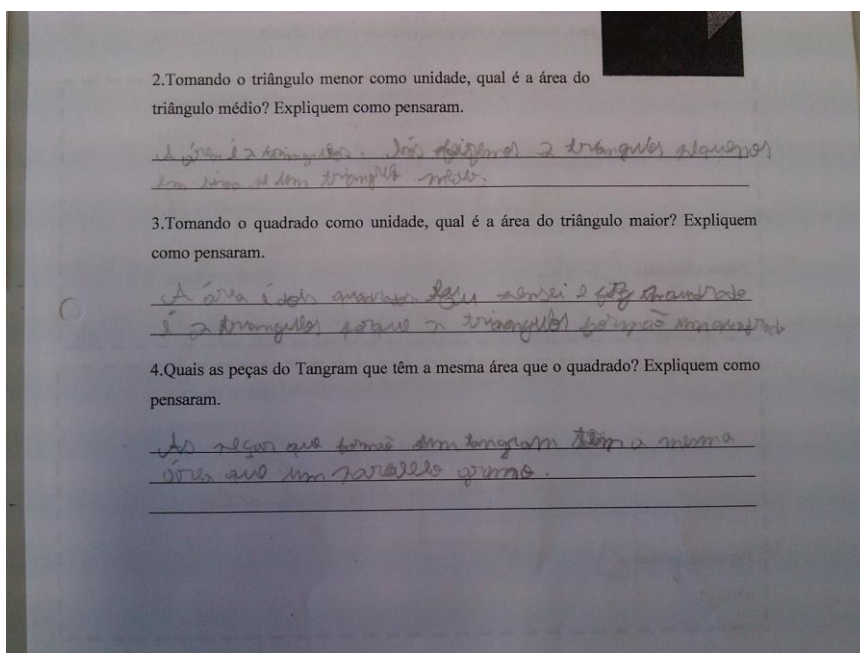 2.Tomando o triângulo menor como unidade, qual é a área do
triângulo médio? Expliquem como pensaram.
A área é 2 triangulos. Nós 2 triangulos pequenos
em sima triangulo médio.
3.Tomando o quadrado como unidade, qual é a área do triângulo maior? Expliquem
como pensaram.
A área é dois quadrados pensei e quadrado
é 2 triangulos porque 2 triangulos formão um quadrado
4.Quais as peças do Tangram que têm a mesma área que o quadrado? Expliquem como
pensaram.
As peças que formão um tangram têm a mesma
área que um paralelo gramo.